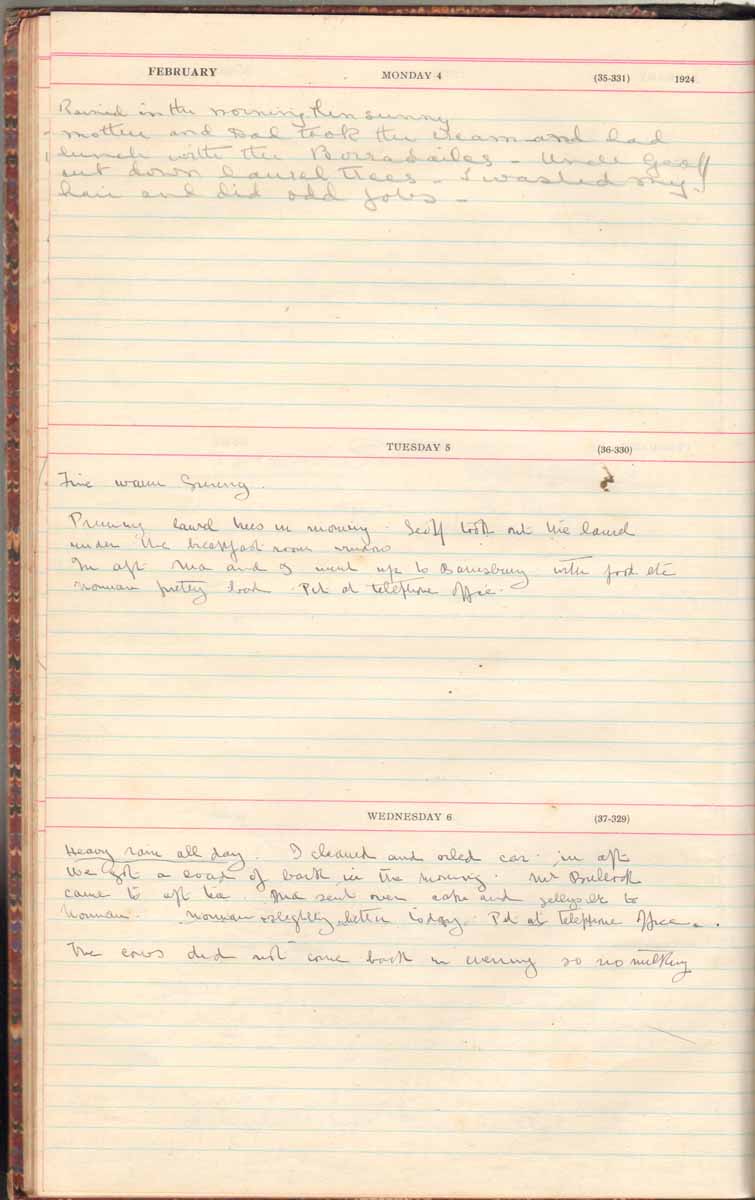 FEBRUARY MONDAY 4 (35-331) 1924
Rained in the morning then sunny
Mother and Dad took the cream and had
lunch with the Borradailes - Uncle Geoff
cut down laurel trees - I washed my
hair and did odd jobs -
TUESDAY 5 (36-330)
Fine warm
Pruning laurel trees in morning. Geoff took out the laurel
under the breakfast room window
In aft Ma and I went up to with food etc
Norman pretty bad. Pd at telephone office.
WEDNESDAY 6 (37-329)
Heavy rain all day. I cleaned and oiled car in aft
We got a load of bark in the morning. Mr Bullock
came to aft tea. Ma sent over cake and jelly etc to
Norman. Norman slightly better today. Pd at telephone office.
The cows did not come back in evening so no milking